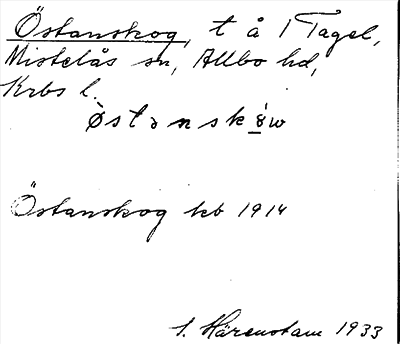 Östanskog, t å 1 Tagel,
Mistelås sn, Allbo hd,
Krbs l.
östanskóẁw
Östanskog kb 1914
S. Härenstam 1933